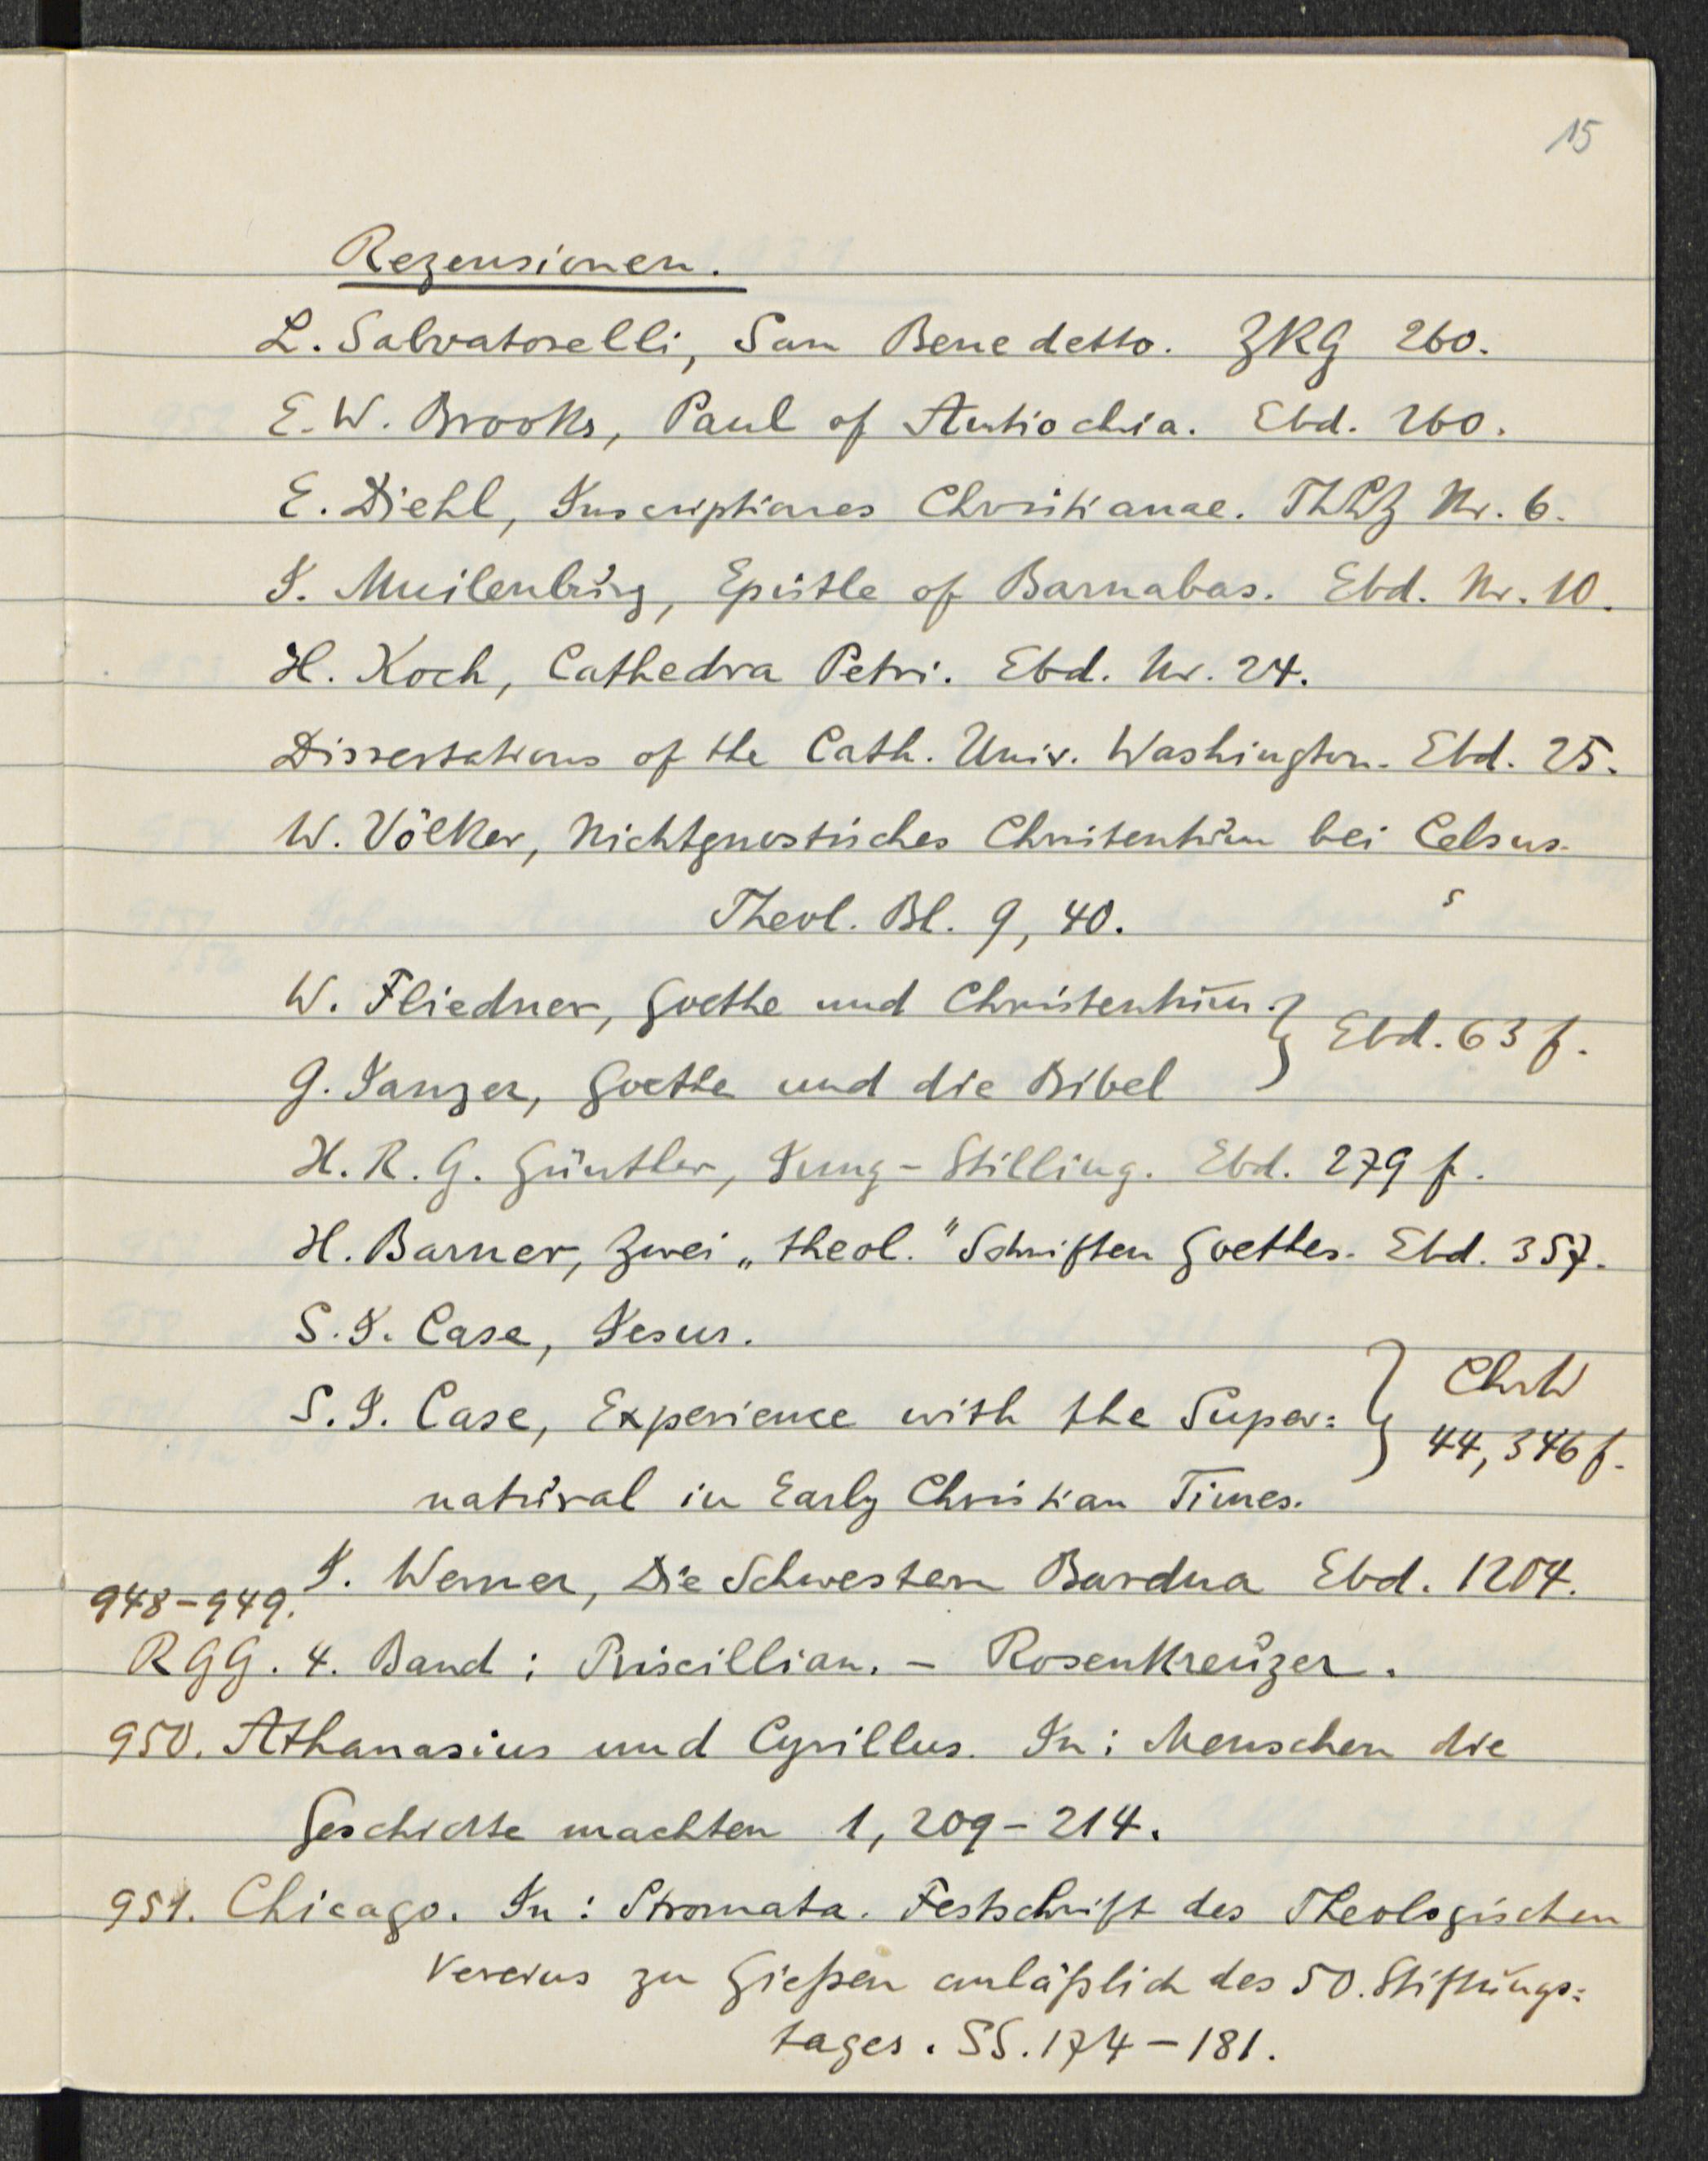 15
Rezensionen.
L. Salvatorelli, San Benedetto. ZKG 260.
E. W. Brooks, Paul of Antiochia. Ebd. 260.
E. Diehl, Inscriptiones Christianae. ThLZ Nr. 6.
J. Muilenburg, Epistle of Barnabas. Ebd. Nr. 10.
H. Koch, Cathedra Petri. Ebd. Nr. 24.
Dissertations of the Cath. Univ. Washington. Ebd. 25.
W. Völker, Nichtgnostisches Christentum bei Celsus.
Theol. Bl. 9, 40.
W. Fliedner, Goethe und Christentum.
} Ebd. 63 f.
G. Janzer, Goethe und die Bibel
H. R. G. Günther, Jung-Stilling. Ebd. 279 f.
H. Barner, Zwei „theol." Schriften Goethes. Ebd. 357.
S. J. Case, Jesus.
S. J. Case, Experience with the Super=
natural in Early Christian Times.
} ChrW
44, 346 f.
J. Werner, Die Schwestern Bardua Ebd. 1204.
948-949.
RGG. 4. Band: Priscillian. - Rosenkreuzer.
950. Athanasius und Cyrillus. In: Menschen die
Geschichte machten 1, 209-214.
951. Chicago. In: Stromata. Festschrift des Theologischen
Vereins zu Gießen anläßlich des 50. Stiftungs=
tages. SS. 174-181.